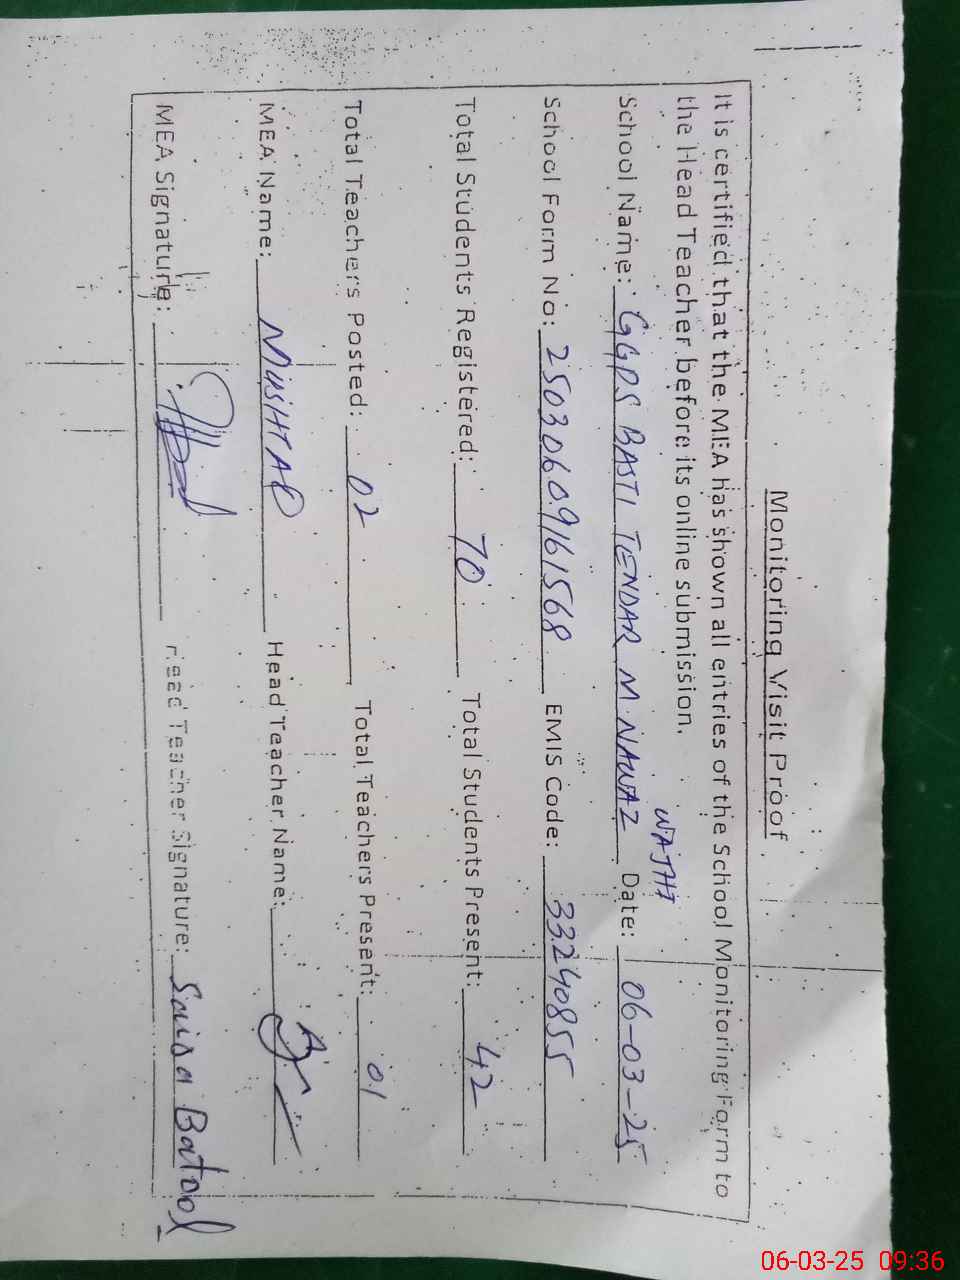 Monitoring Visit Proof
It is certified that the MEA has shown all entries of the School Monitoring Form to
the Head Teacher before its online submission.
WAJHI
School Name: GGPS BASTI TENDAR M. NAWAZ Date: 06-03-25
School Form No: 25030609161568 EMIS Code: 33240855
Total Students Registered: 70 Total Students Present: 42
Total Teachers Posted: 02 Total Teachers Present: 01
MEA Name: MUSHTAQ Head Teacher Name:
MEA Signature: Head Teacher Signature: Batool
06-03-25 09:36